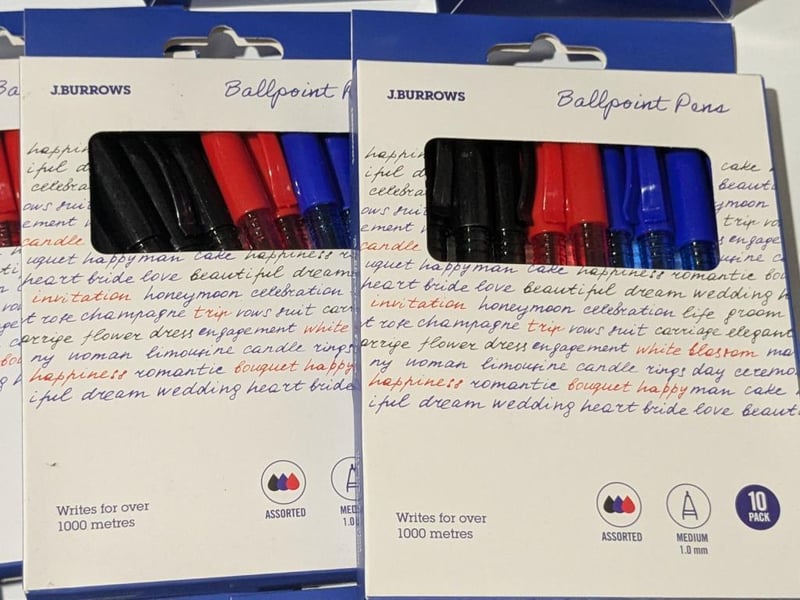 J.BURROWS
Ballpoint
happin
iful d
celebra
ows suit
ement w
candle
uquet happy man cake happiness r
heart bride love beautiful dream
invitation honeymoon celebration
t rose champagne trip vows suit carr
arrige flower dress engagement white
ny woman limousine candle rings
happiness romantic bouquet happy
iful dream wedding heart bride
Writes for over
1000 metres
ASSORTED
1.0
J.BURROWS
Ballpoint Pens
happin cake
iful d beauti
celebra ymoon
ows suit trip vo
ement w s engage
candle usine c
uquet happy man cake happiness romantic bou
heart bride love beautiful dream wedding h
invitation honeymoon celebration life groom
t rose champagne trip vows suit carriage elegant
arrige flower dress engagement white blossom ma
ny woman limousine candle rings day ceremo
happiness romantic bouquet happy man cake
iful dream wedding heart bride love beauti
Writes for over
1000 metres
ASSORTED
MEDIUM
1.0 mm
10
PACK